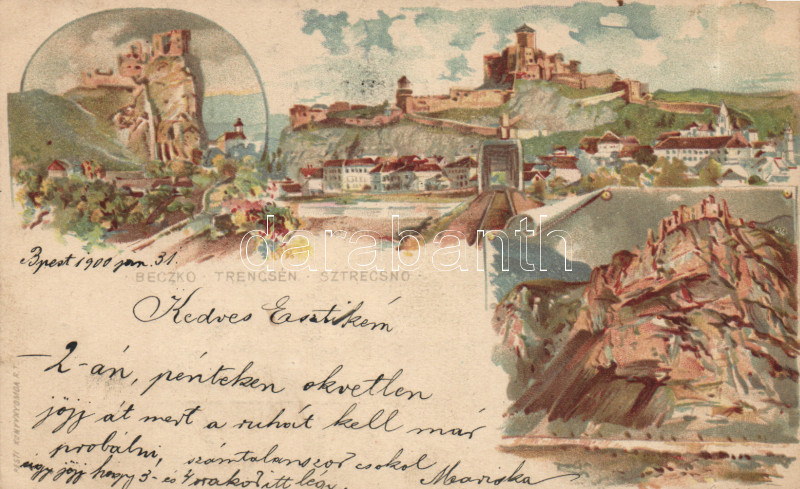 Bpest 1900 jan. 31.
BECZKÓ TRENCSÉN SZTRECSNÓ
darabanth
Kedves Esztikém
2-án, pénteken okvetlen
jöjj át mert a ruhát kell már
próbálni, számtalanszor csókol
úgy jöjj hogy 3- és 4 órakor itt légy.
Mariska